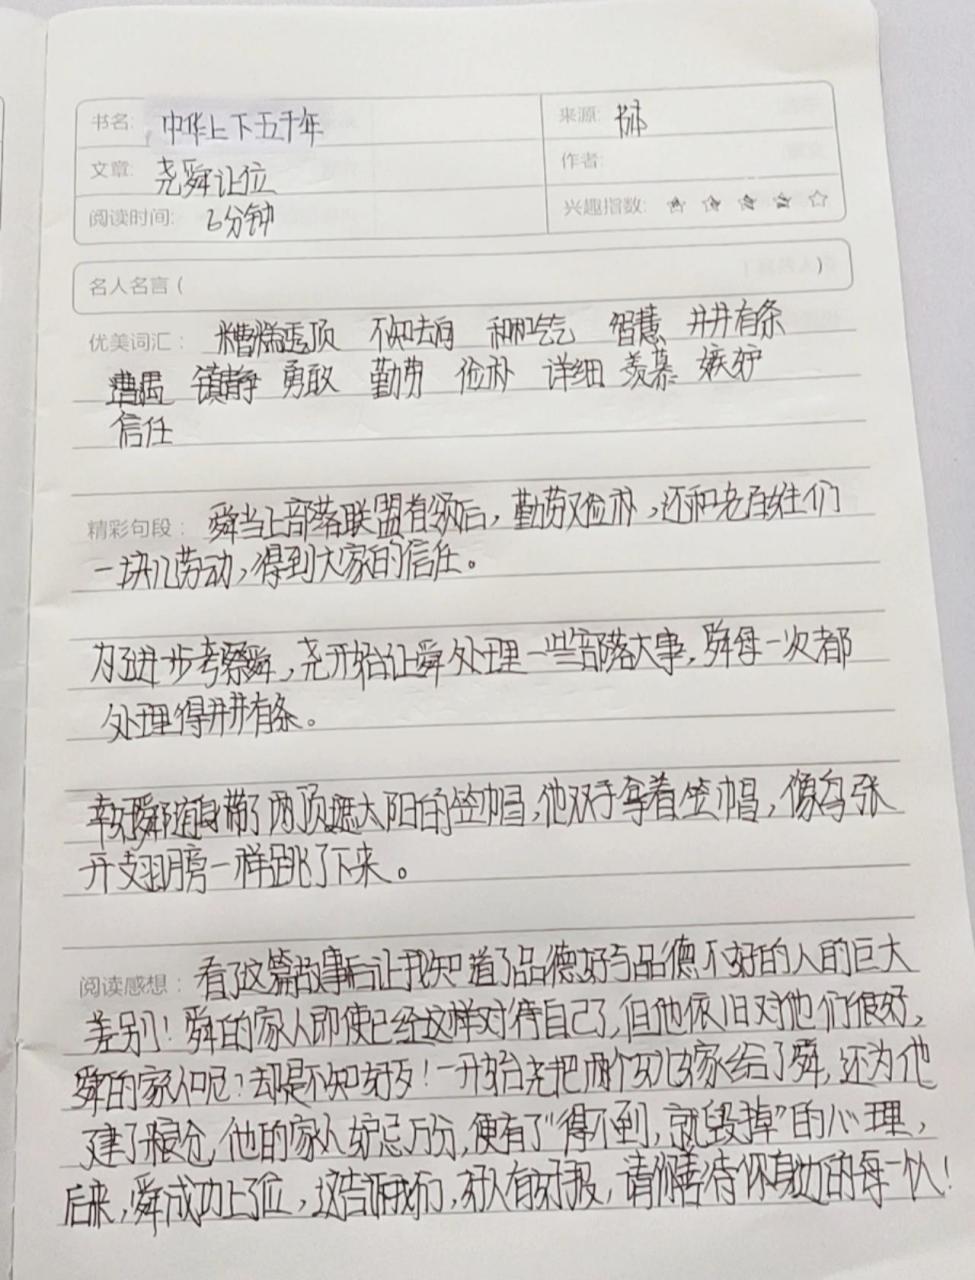 书名: 中华上下五千年
来源: 书本
文章: 尧舜让位
作者:
阅读时间: 6分钟
兴趣指数:
名人名言 ( )
优美词汇: 糟糕透顶 不知去向 和和气气 智慧 井井有条
遭遇 镇静 勇敢 勤劳 俭朴 详细 羡慕 嫉妒
信任
精彩句段: 舜当上部落联盟首领后,勤劳又俭朴,还和老百姓们
一块儿劳动,得到大家的信任。
为了进一步考察舜,尧开始让舜处理一些部落大事,舜每一次都
处理得井井有条。
幸好舜随身带了两顶遮太阳的笠帽,他双手拿着笠帽,像鸟张
开翅膀一样跳了下来。
阅读感想: 看了这篇故事后让我知道了品德好与品德不好的人的巨大
差别!舜的家人即使已经这样对待自己了,但他依旧对他们很好,
舜的家人呢?却是不知好歹!一开始尧把两个女儿嫁给了舜,还为他
建了粮仓,他的家人妒忌万分,便有了"得不到,就毁掉"的心理,
后来,舜成功上了位,这告诉我们,好人有好报,请你善待你身边的每一个人!